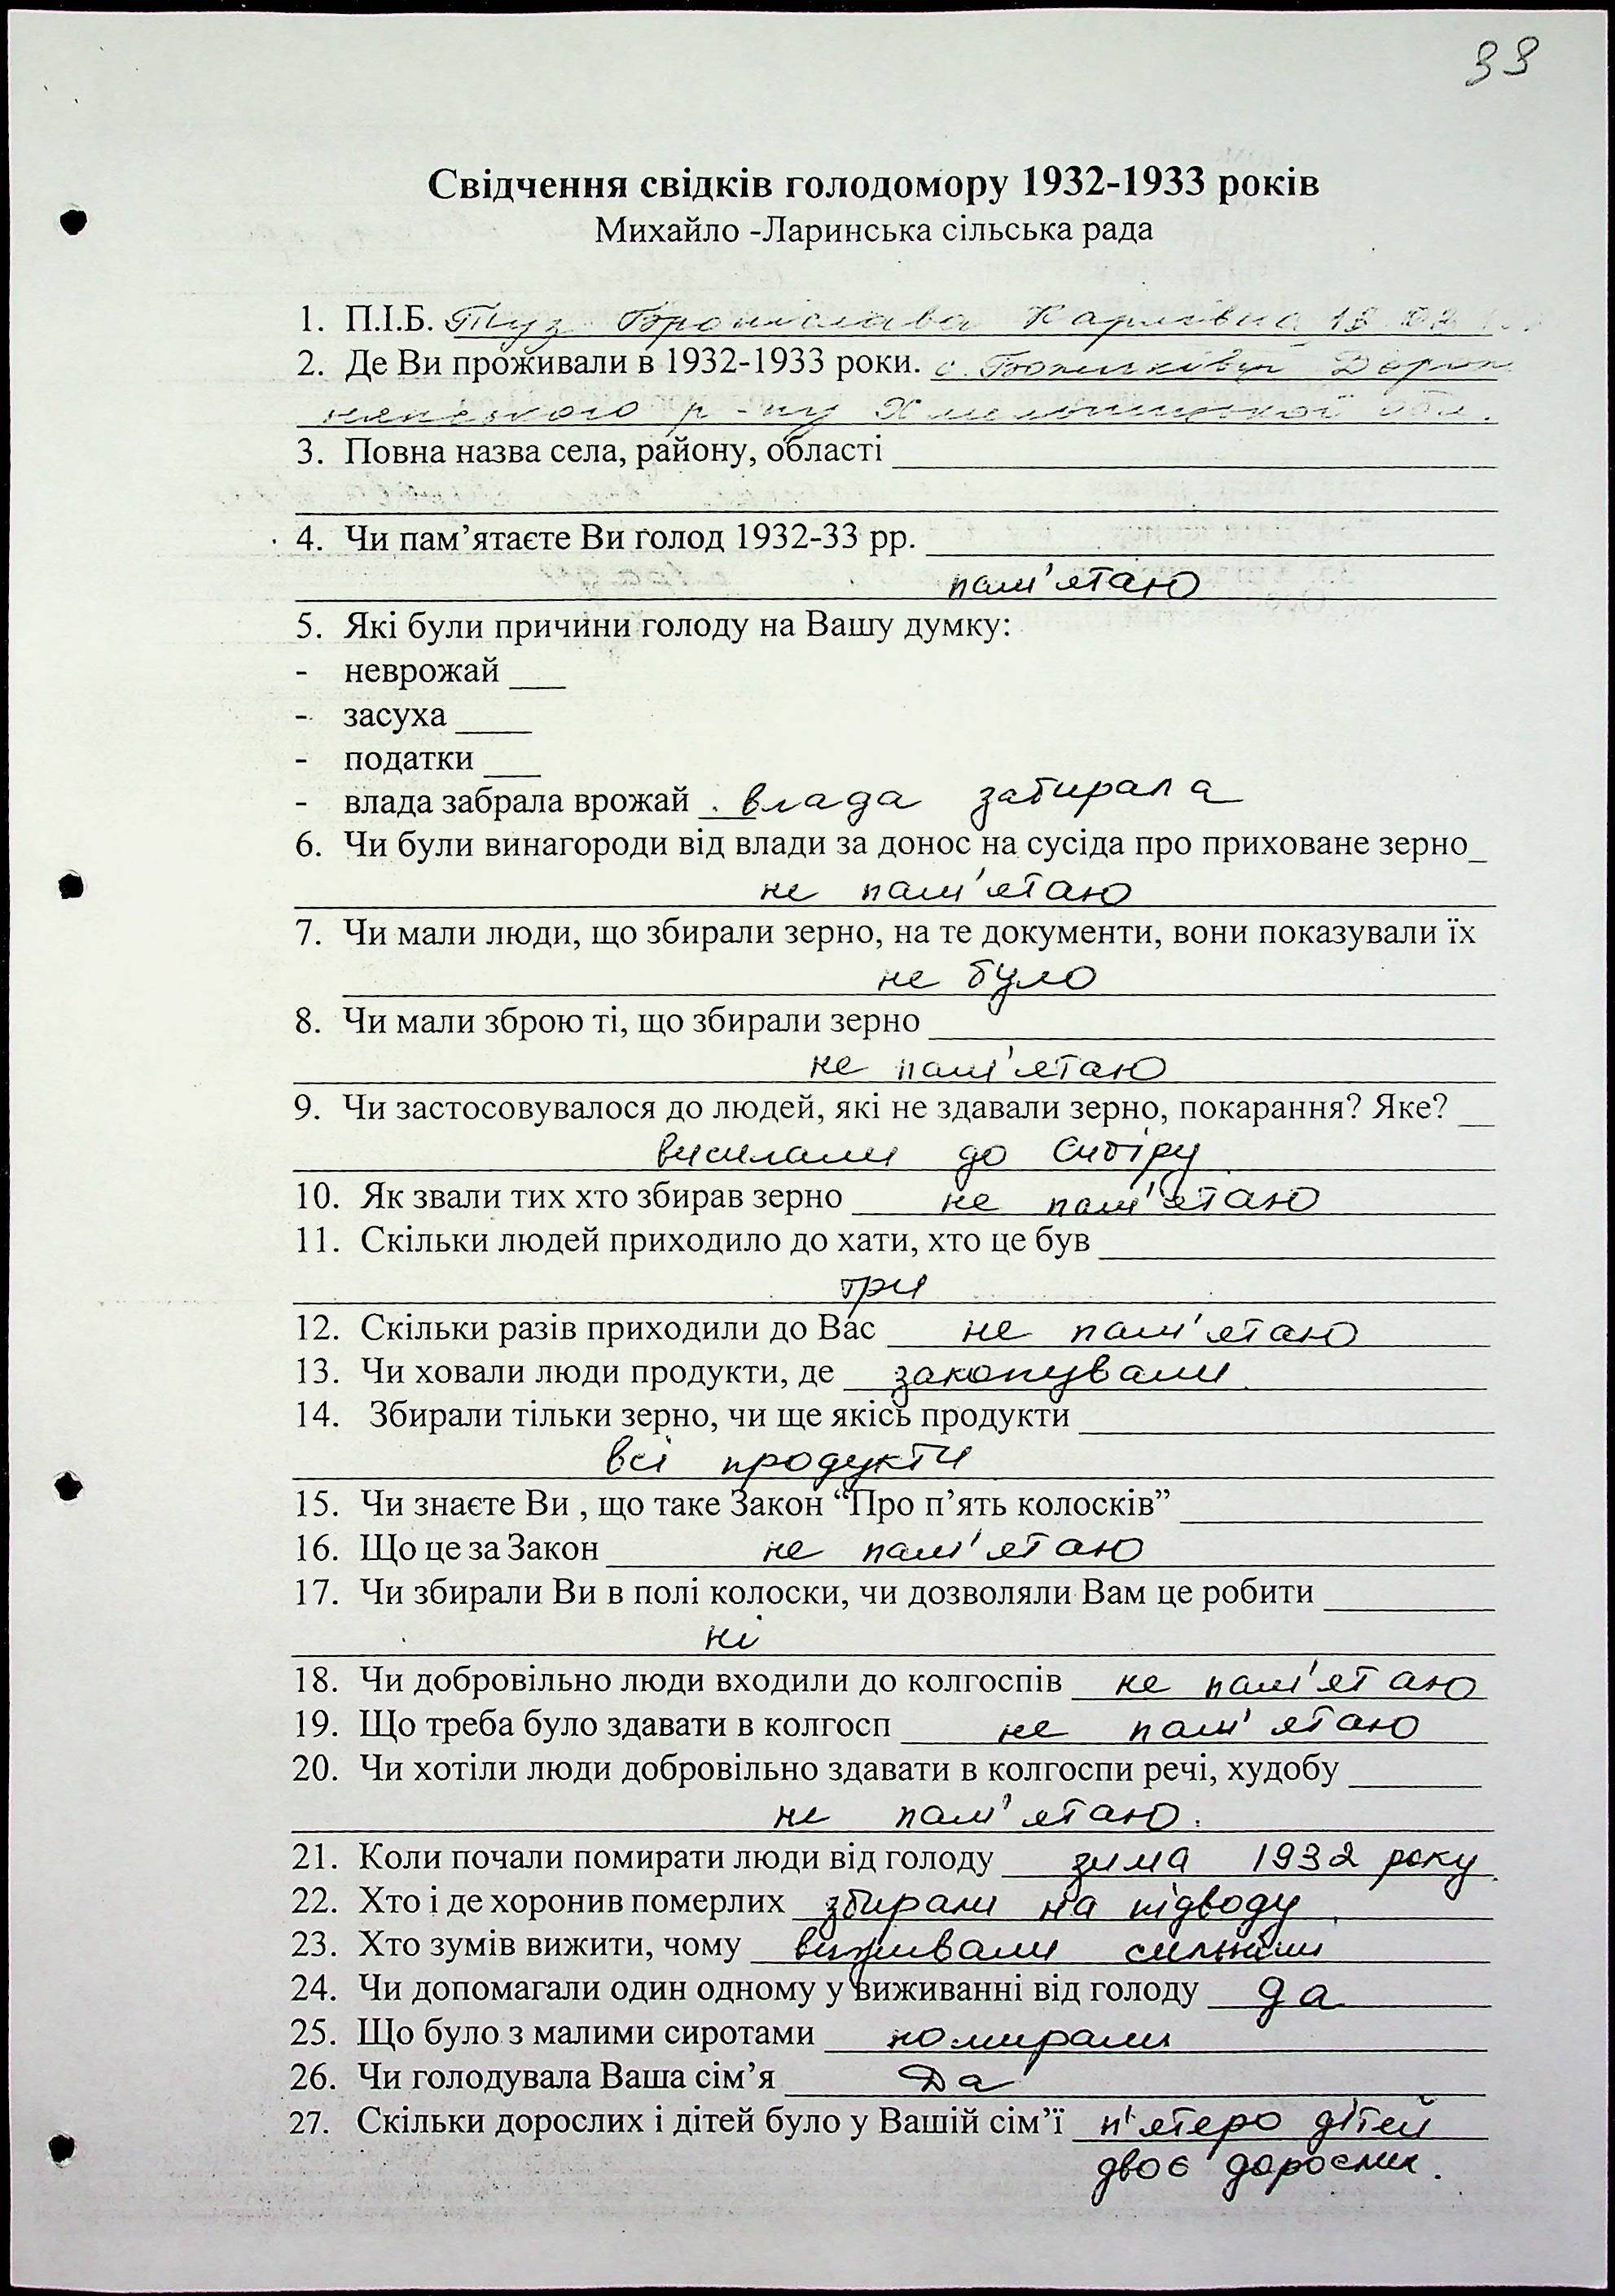 33
Свідчення свідків голодомору 1932-1933 років
Михайло -Ларинська сільська рада
1. П.І.Б. Туз Броніслава Карлівна
2. Де Ви проживали в 1932-1933 роки. с.
р-ну Хмельницької обл.
3. Повна назва села, району, області
4. Чи пам’ятаєте Ви голод 1932-33 рр.
пам'ятаю
5. Які були причини голоду на Вашу думку:
- неврожай ___
- засуха ____
- податки ___
- влада забрала врожай влада забирала
6. Чи були винагороди від влади за донос на сусіда про приховане зерно_
не пам'ятаю
7. Чи мали люди, що збирали зерно, на те документи, вони показували їх
не було
8. Чи мали зброю ті, що збирали зерно
не пам'ятаю
9. Чи застосовувалося до людей, які не здавали зерно, покарання? Яке? __
висилали до Сибіру
10. Як звали тих хто збирав зерно не пам'ятаю
11. Скільки людей приходило до хати, хто це був
три
12. Скільки разів приходили до Вас не пам'ятаю
13. Чи ховали люди продукти, де закопували
14. Збирали тільки зерно, чи ще якісь продукти
всі продукти
15. Чи знаєте Ви , що таке Закон “Про п’ять колосків”
16. Що це за Закон не пам'ятаю
17. Чи збирали Ви в полі колоски, чи дозволяли Вам це робити
ні
18. Чи добровільно люди входили до колгоспів не пам'ятаю
19. Що треба було здавати в колгосп не пам'ятаю
20. Чи хотіли люди добровільно здавати в колгоспи речі, худобу
не пам'ятаю.
21. Коли почали помирати люди від голоду зима 1932 року
22. Хто і де хоронив померлих збирали на підводу
23. Хто зумів вижити, чому виживали сильніші
24. Чи допомагали один одному у виживанні від голоду да
25. Що було з малими сиротами помирали
26. Чи голодувала Ваша сім’я Да
27. Скільки дорослих і дітей було у Вашій сім’ї п'ятеро дітей
двоє дорослих.